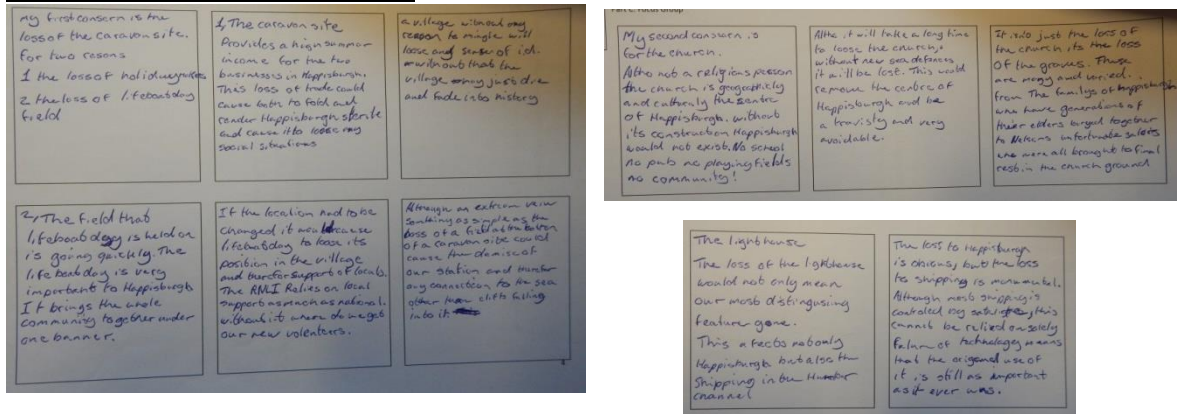 my first consern is the
loss of the caravan site.
for two resons
1 the loss of holidaymakers
2 the loss of lifeboat day
field
1, The caravan site
Provides a high summer
income for the two
businesses in Happisburgh.
This loss of trade could
cause both to fold and
render Happisburgh sterile
and cause it to loose any
social situations
a village without any
reason to mingle will
loose any sense of i.d.
without that the
village may just die
and fade into history
2, The field that
lifeboat day is held on
is going quickly. The
lifeboat day is very
important to Happisburgh
It brings the whole
community together under
one banner.
If the location had to be
changed it would cause
lifeboat day to loose its
position in the village
and therfor support of locals.
The RNLI Relies on local
support as much as national.
without it where do we get
our new volenteers.
Although an extreem veiw
somthing as simple as the
loss of a field at the bottom
of a caravan site could
cause the demise of
our station and therfor
any connection to the sea
other than cliffs falling
into it.
Part C: Focus Group
My second consern is
for the church.
Altho not a religious person
the church is geographicly
and culturaly the centre
of Happisburgh. without
its construction Happisburgh
would not exist. No school
no pub no playing fields
no community!
Altho it will take a long time
to loose the church,
without new sea defences
it will be lost. This would
remove the centre of
Happisburgh and be
a travisty and very
avoidable.
It is not just the loss of
the church its the loss
of the graves. These
are many and varied.
from The familys of Happisburgh
who have generations of
their elders buryed together
to Nelsons unfortunate sailors
who were all brought to final
rest in the church ground
The lighthouse
The loss of the lighthouse
would not only mean
our most distingusing
feature gone.
This afects not only
Happisburgh but also the
Shipping in the
channel
The loss to Happisburgh
is obvious, but the loss
to shipping is monumental.
Although most shipping is
controled by satulites, this
cannot be relied on solely
failure of technology means
that the origonal use of
it is still as important
as it ever was.